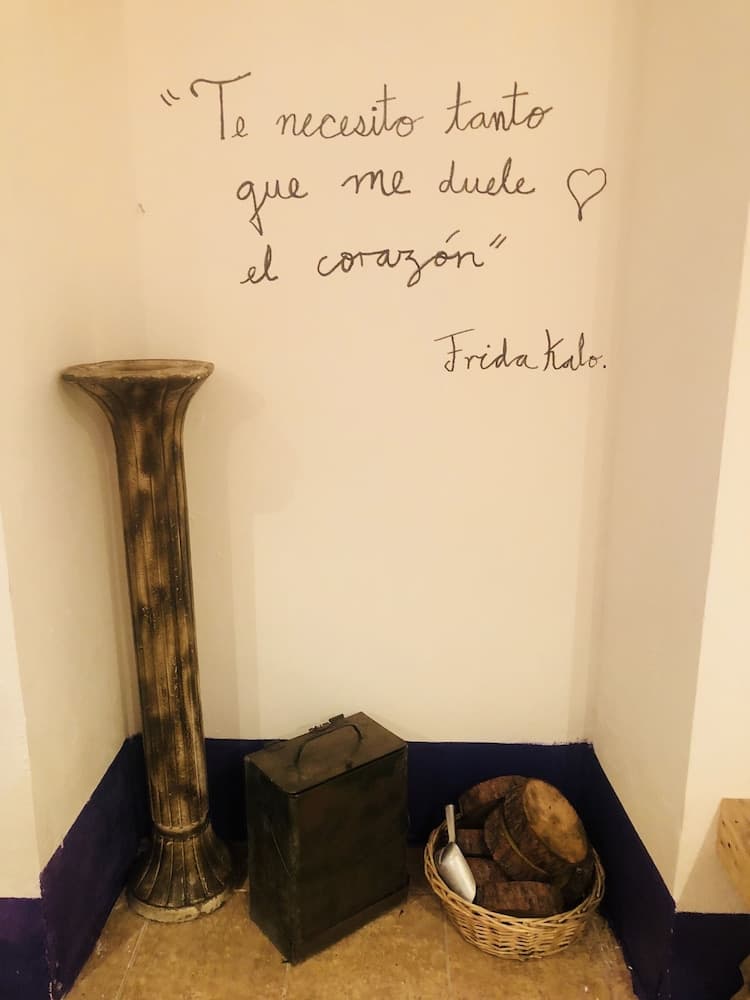 "Te necesito tanto
que me duele ♡
el corazón"
Frida Kalo.